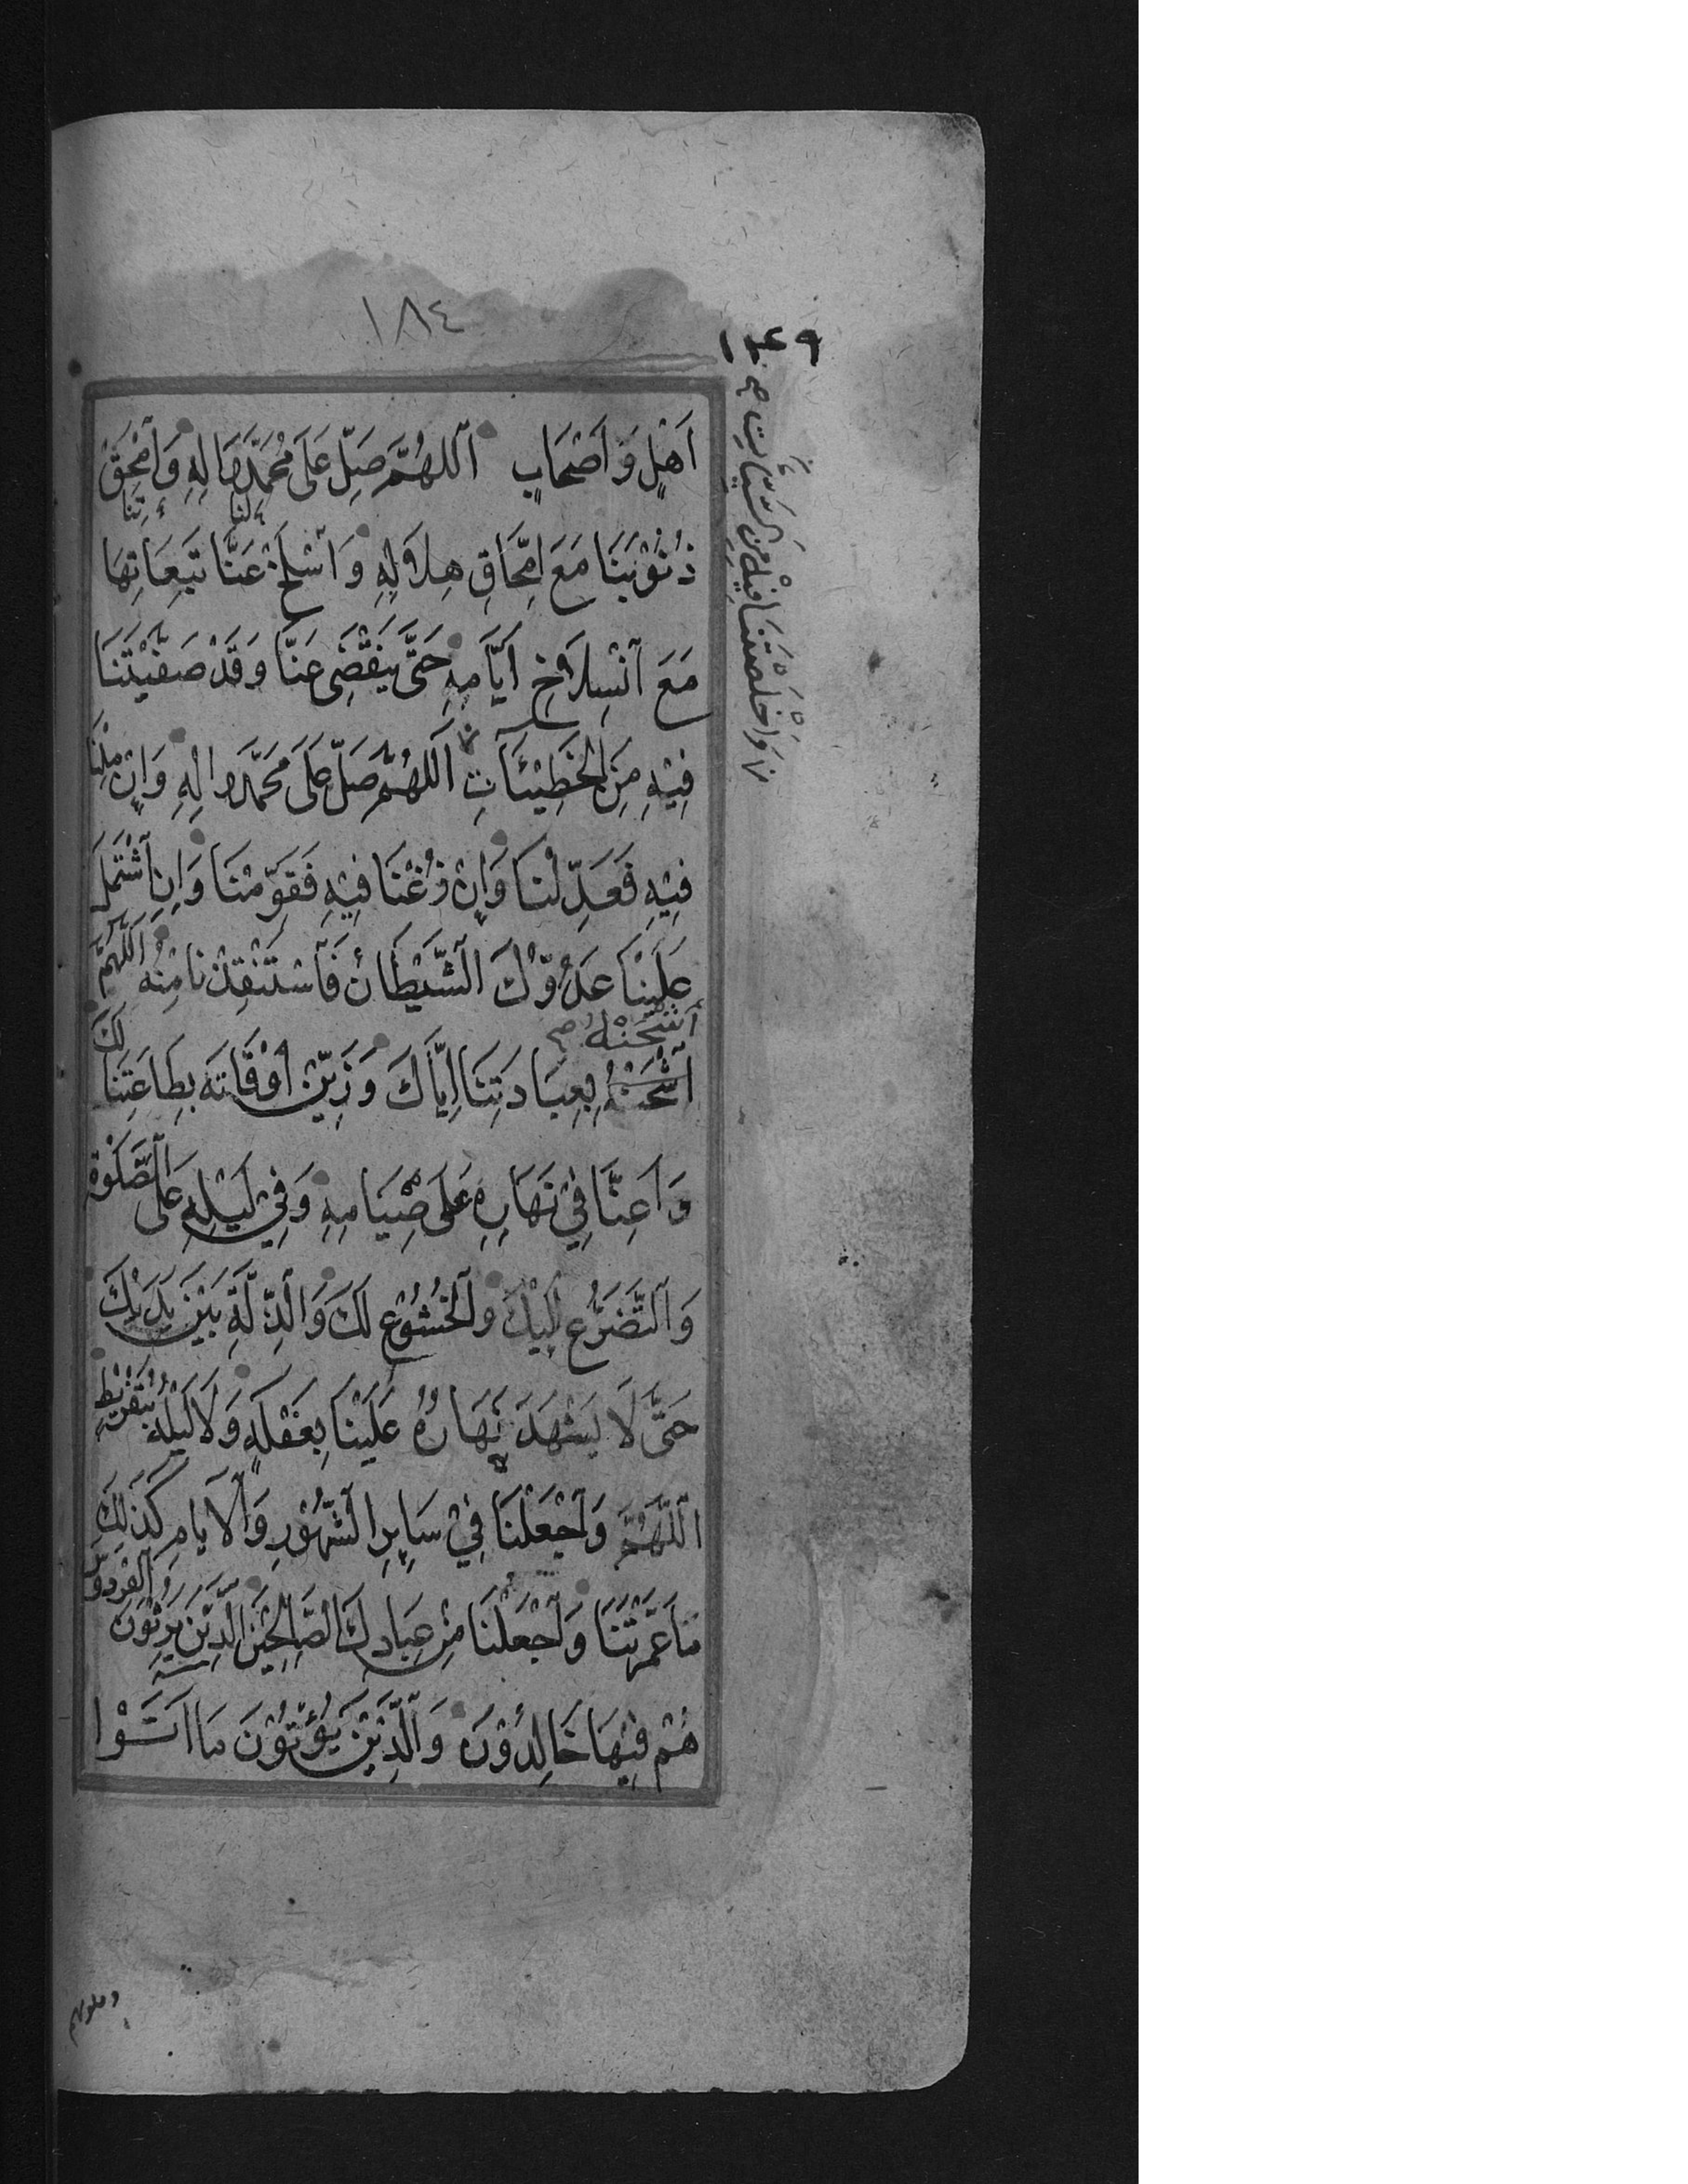 ١٨٤
١٢٤٩
اَهْلٍ وَ اَصْحَابٍ اَللّٰهُمَّ صَلِّ عَلَى مُحَمَّدٍ وَاٰلِهِ وَ امْحَقْ
ذُنُوْبَنَا مَعَ امِّحَاقِ هِلَالِهِ وَ اسْلَخْ عَنَّا تَبِعَاتِهَا
مَعَ انْسِلَاخِ اَيَّامِهِ حَتَّى يَنْقَضِيَ عَنَّا وَ قَدْ صَفَّيْتَنَا
فِيْهِ مِنَ الْخَطِيْئَاتِ اَللّٰهُمَّ صَلِّ عَلَى مُحَمَّدٍ وَاٰلِهِ وَ اِنْ مِلْنَا
فِيْهِ فَعَدِّلْنَا وَ اِنْ زُغْنَا فِيْهِ فَقَوِّمْنَا وَ اِنِ اشْتَمَلَ
عَلَيْنَا عَدُوُّكَ الشَّيْطَانُ فَاسْتَنْقِذْنَا مِنْهُ اَللّٰهُمَّ
اشْحَنْهُ صح
اشْحَنْهُ بِعِبَادَتِنَا اِيَّاكَ وَ زَيِّنْ اَوْقَاتَهُ بِطَاعَتِنَا لَكَ
وَ اَعِنَّا فِيْ نَهَارِهِ عَلَى صِيَامِهِ وَ فِيْ لَيْلِهِ عَلَى الصَّلٰوةِ
وَ التَّضَرُّعِ اِلَيْكَ وَ الْخُشُوْعِ لَكَ وَ الذِّلَّةِ بَيْنَ يَدَيْكَ
حَتَّى لَا يَشْهَدَ نَهَارُهُ عَلَيْنَا بِغَفْلَةٍ وَ لَا لَيْلُهُ بِتَفْرِيْطٍ
اَللّٰهُمَّ وَ اجْعَلْنَا فِيْ سَايِرِ الشُّهُوْرِ وَ الْاَيَامِ كَذٰلِكَ
مَا عَمَّرْتَنَا وَ اجْعَلْنَا مِنْ عِبَادِكَ الصَّالِحِيْنَ الَّذِيْنَ يَرِثُوْنَ الْفِرْدَوْسَ
هُمْ فِيْهَا خَالِدُوْنَ وَ الَّذِيْنَ يُؤْتُوْنَ مَا اٰتَوْا
وَ اَخْلَصْتَنَا فِيْهِ مِنَ السَّيِّئَاتِ صح
وقلوبهم